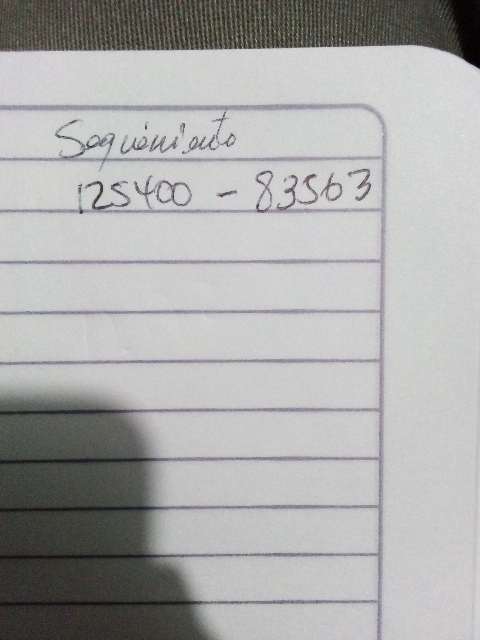 Seguimiento
125400 - 83563